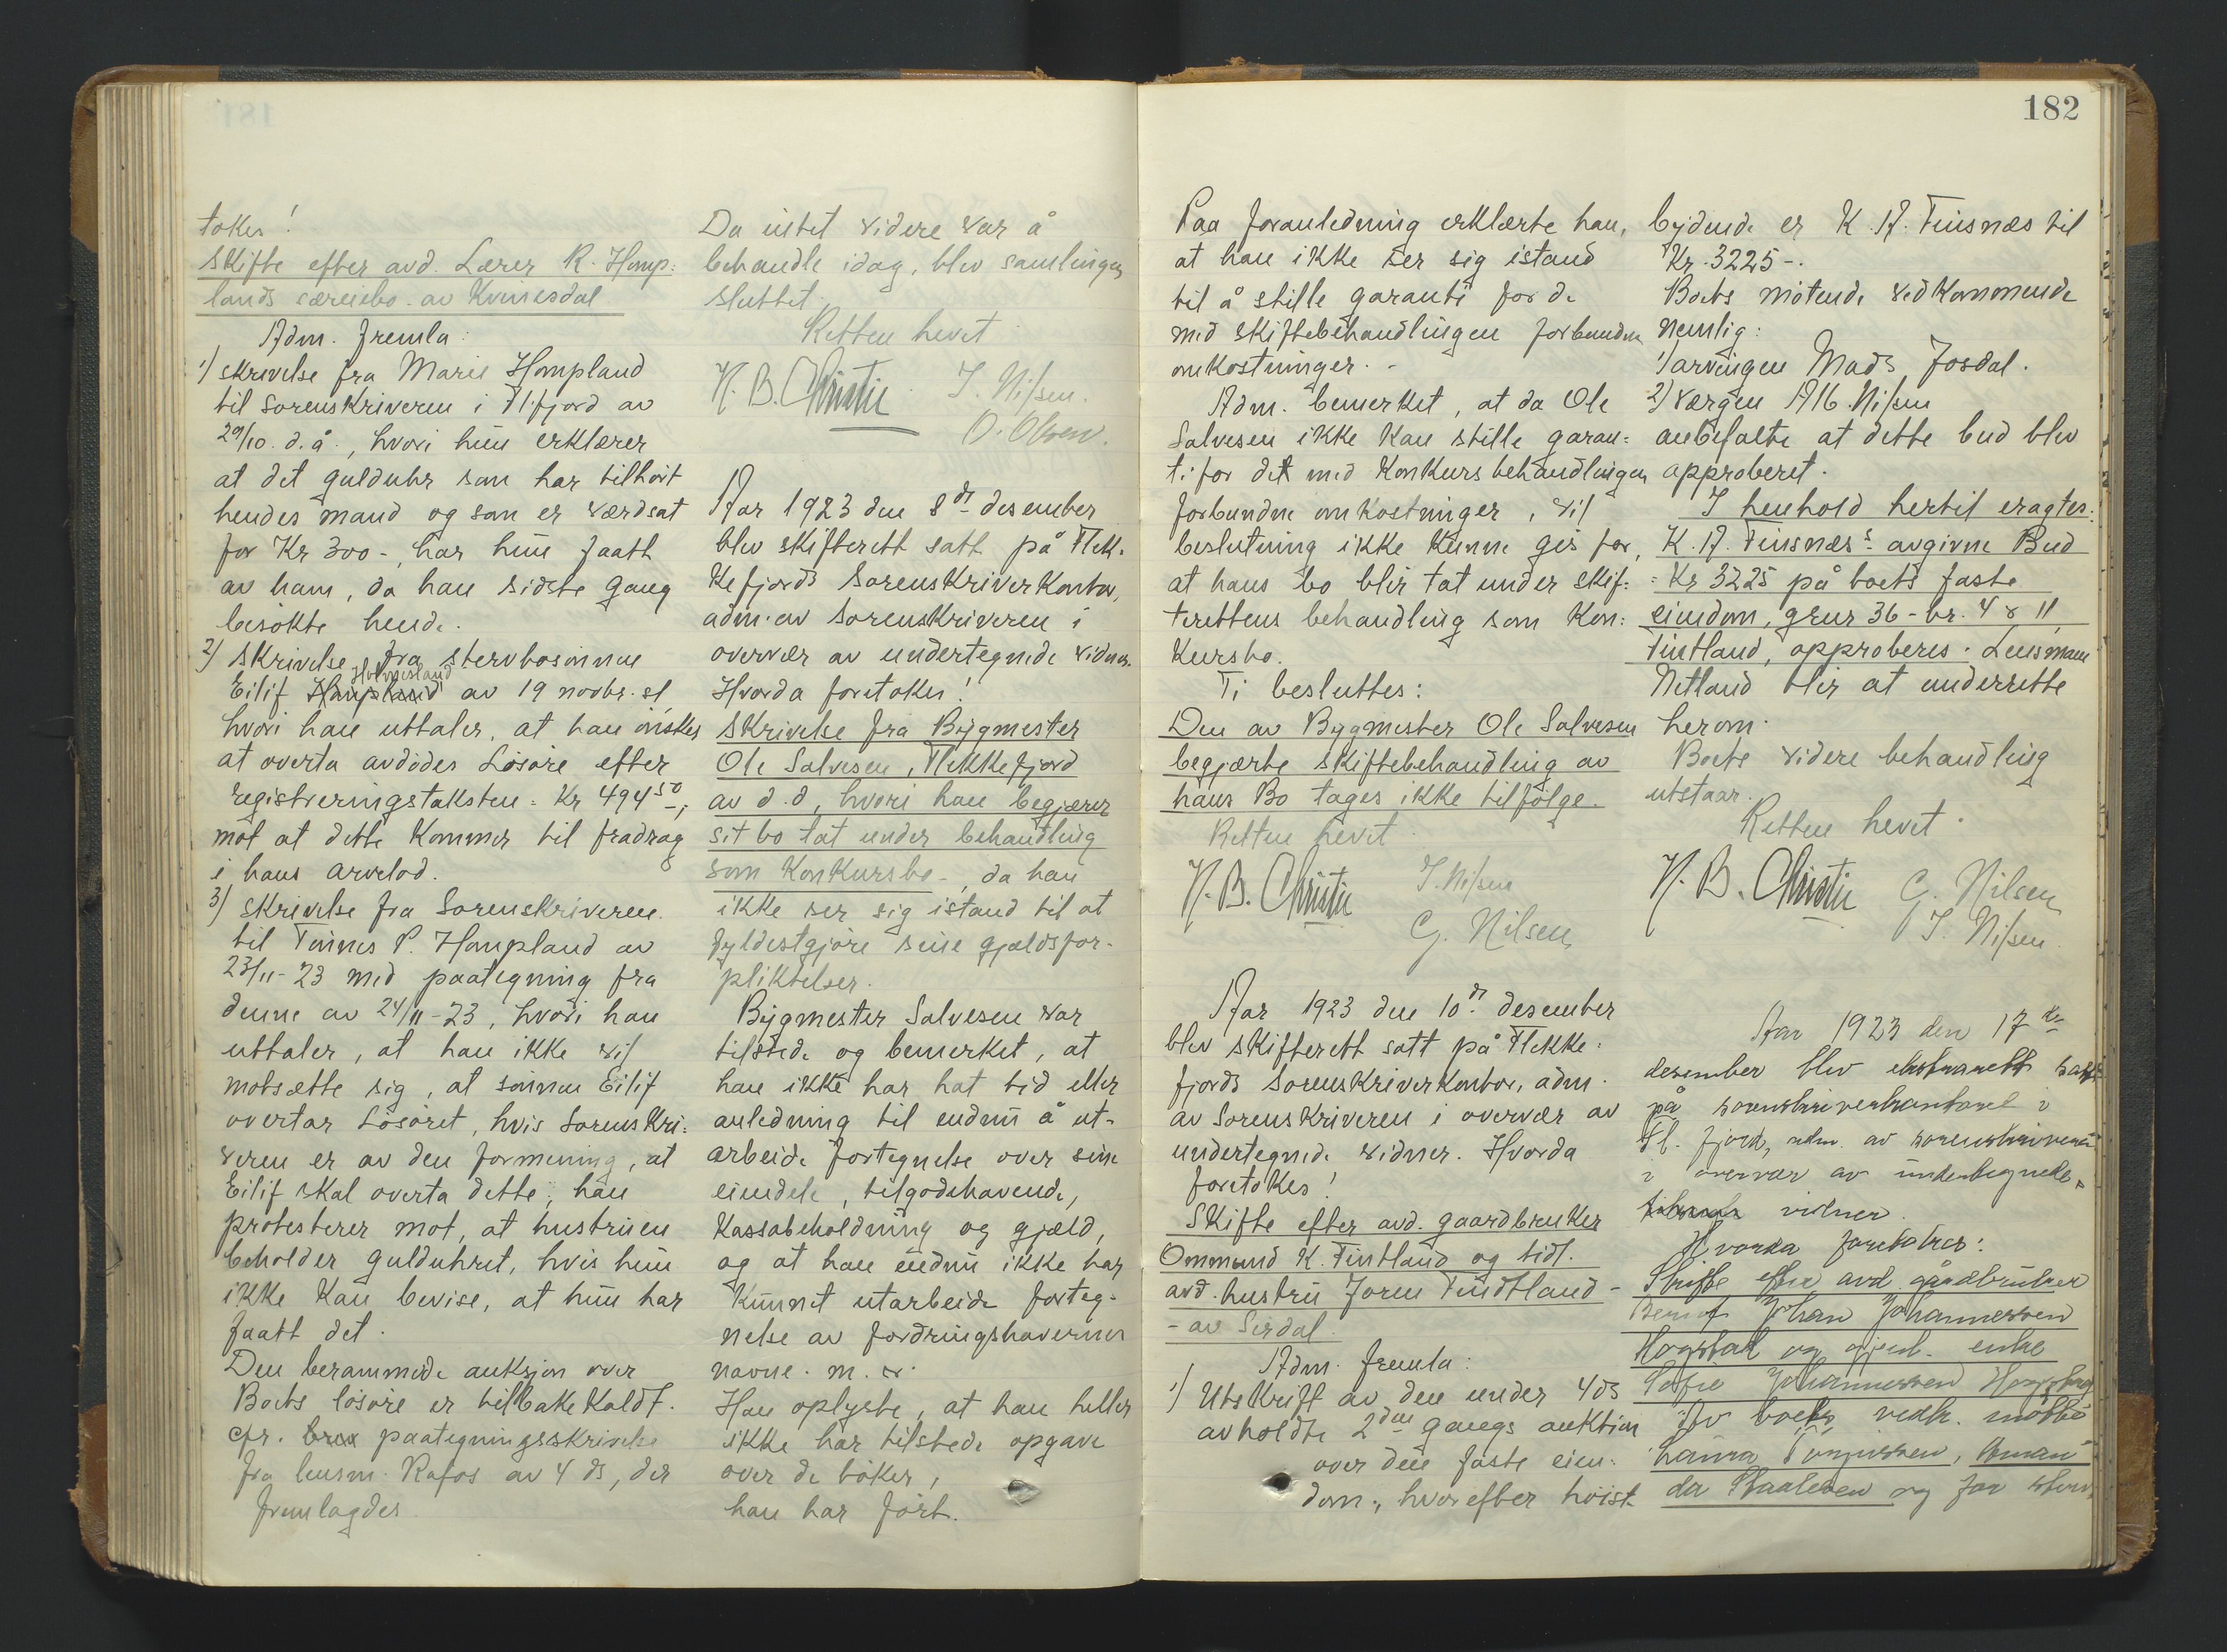 takes!
Skifte efter avd. Lærer R. Homp:
lands særeiebo av Kvinesdal
Adm. fremla:
1) skrivelse fra Marie Hompland
til sorenskriveren i Fl.fjord av
29/10. d.å., hvori hun erklærer
at det gulduhr som har tilhört
hendes mand og som er værdsat
for Kr 300-, har hun faatt
av ham, da han sidste gang
besökte hende.
2) Skrivelse fra stervbosönnen
Eilif Hompland av 19 novbr. sl
hvori han uttaler, at han önsker
at overta avdödes Lösöre efter
registreringstaksten = Kr 494 50 -,
mot at dette kommer til fradrag
i hans arvelod.
3) skrivelse fra Sorenskriveren
til Tönnes P. Hompland av
23/11-23 med paategning fra
denne av 24/11-23, hvori han
uttaler, at han ikke vil
motsætte sig, at sönnen Eilif
overtar Lösöret, hvis Sorenskri:
veren er av den formening, at
Eilif skal overta dette; han
protesterer mot, at hustruen
beholder gulduhret, hvis hun
ikke kan bevise, at hun har
faatt det.
Den berammede auksjon over
Boets lösöre er tilbakekaldt.
cfr. paategningsskrivelse
fra lensm. Rafos av 4 ds, der
fremlagdes
Da intet videre var å
behandle idag, blev samlingen
sluttet.
Retten hevet
N. B. Christie. T. Nilsen.
O. Olsen.
Aar 1923 den 8de desember
blev skifterett satt på Flek-
kefjords Sorenskriverkontor,
adm. av Sorenskriveren i
overvær av undertegnede vidner.
Hvorda foretokes!
Skrivelse fra Bygmester
Ole Salvesen, Flekkefjord
av d.d., hvori han begjærer
sit bo tat under behandling
som Konkursbo-, da han
ikke ser sig istand til at
fyldestgjöre sine gjældsfor-
pliktelser.
Bygmester Salvesen var
tilstede og bemerket, at
han ikke har hat tid eller
anledning til endnu å ut-
arbeide fortegnelse over sine
eiendele, tilgodehavende,
Kassabeholdning og gjæld,
og at han endnu ikke har
kunnet utarbeide forteg-
nelse av fordringshavernes
navne. m. v.
Han oplyste, at han heller
ikke har tilstede opgave
over de böker,
han har fört.
182
Paa foranledning erklærte han,
at han ikke ser sig istand
til å stille garanti for de
med skiftebehandlingen forbundne
omkostninger. -
Adm. bemerket, at da Ole
Salvesen ikke kan stille garan:
ti for det med Konkursbehandlingen
forbundne omkostninger, vil
beslutning ikke kunne gis for,
at hans bo blir tat under skif:
terettens behandling som Kon:
kursbo.
Ti besluttes:
Den av Bygmester Ole Salvesen
begjærte skiftebehandling av
hans Bo tages ikke tilfölge.
Retten hevet
N. B. Christie T. Nilsen
G. Nilsen
Aar 1923 den 10de desember
blev skifterett satt på Flekke-
fjords Sorenskriverkontor, adm.
av Sorenskriveren i overvær av
undertegnede vidner. Hvorda
foretokes!
Skifte efter avd. gaardbruker
Ommund K. Tintland og tidl.
avd. hustru Joren Tindtland -
- av Sirdal.
Adm. fremla:
1) Utskrift av den under 4 ds
avholdte 2den gangs auktion
over den faste eien-
dom, hvorefter höist-
bydende er K. A. Tinsnæs til
Kr. 3225-.
Boets mötende vedkommende
nemlig:
1) arvingen Mads Josdal.
2) værgen Alb. Nilsen
anbefalte at dette bud blev
approberet.
I henhold hertil eragtes:
K. A. Tinsnæs's avgivne Bud
= Kr 3225 på boets faste
eiendom, gnr 36 - br. 4 & 11,
Tintland, approberes. Lensmann
Netland blir at underrette
herom.
Boets videre behandling
utstaar.
Retten hevet.
N. B. Christie G. Nilsen
T. Nilsen.
Aar 1923 den 17de
desember blev ekstrarett satt
på sorenskriverkontoret i
Fl. fjord, adm. av sorenskriveren
i overvær av undertegnede
vidner.
Hvorda foretokes:
Skifte efter avd. gårdbruker
Johan Johannessen
og gjenl. enke
Sofie Johannessen
Av boets vedk. mötte
, Aman-
da Staalesen og for